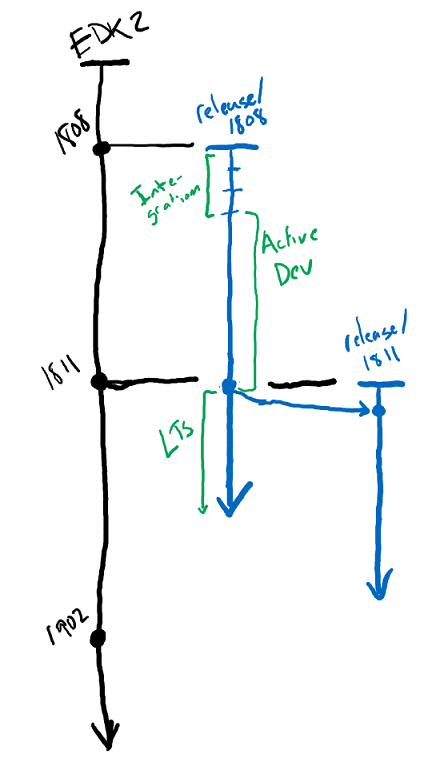 EDK2
1808
release/
1808
Inte-
gration
Active
Dev
release/
1811
1811
LTS
1902